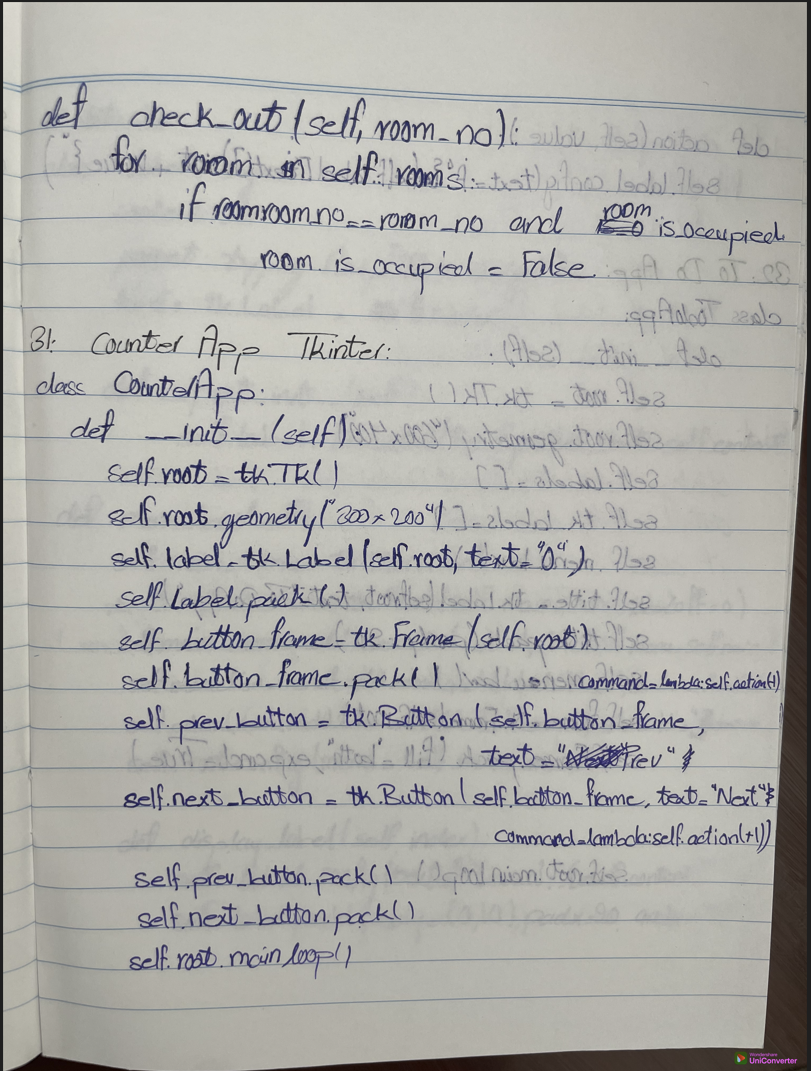 def check_out(self, room_no):
for room in self.rooms:
if room.room_no == room_no and room is_occupied
room.is_occupied = False
31. Counter App Tkinter:
class CounterApp:
def __init__(self)
self.root = tk.Tk()
self.root.geometry("300x200")
self.label = tk.Label(self.root, text="0")
self.label.pack()
self.button_frame = tk.Frame(self.root)
self.button_frame.pack()
command=lambda:self.action(-1)
self.prev_button = tk.Button(self.button_frame,
text="Prev"
self.next_button = tk.Button(self.button_frame, text="Next"
command=lambda:self.action(+1))
self.prev_button.pack()
self.next_button.pack()
self.root.mainloop()
Wondershare
UniConverter